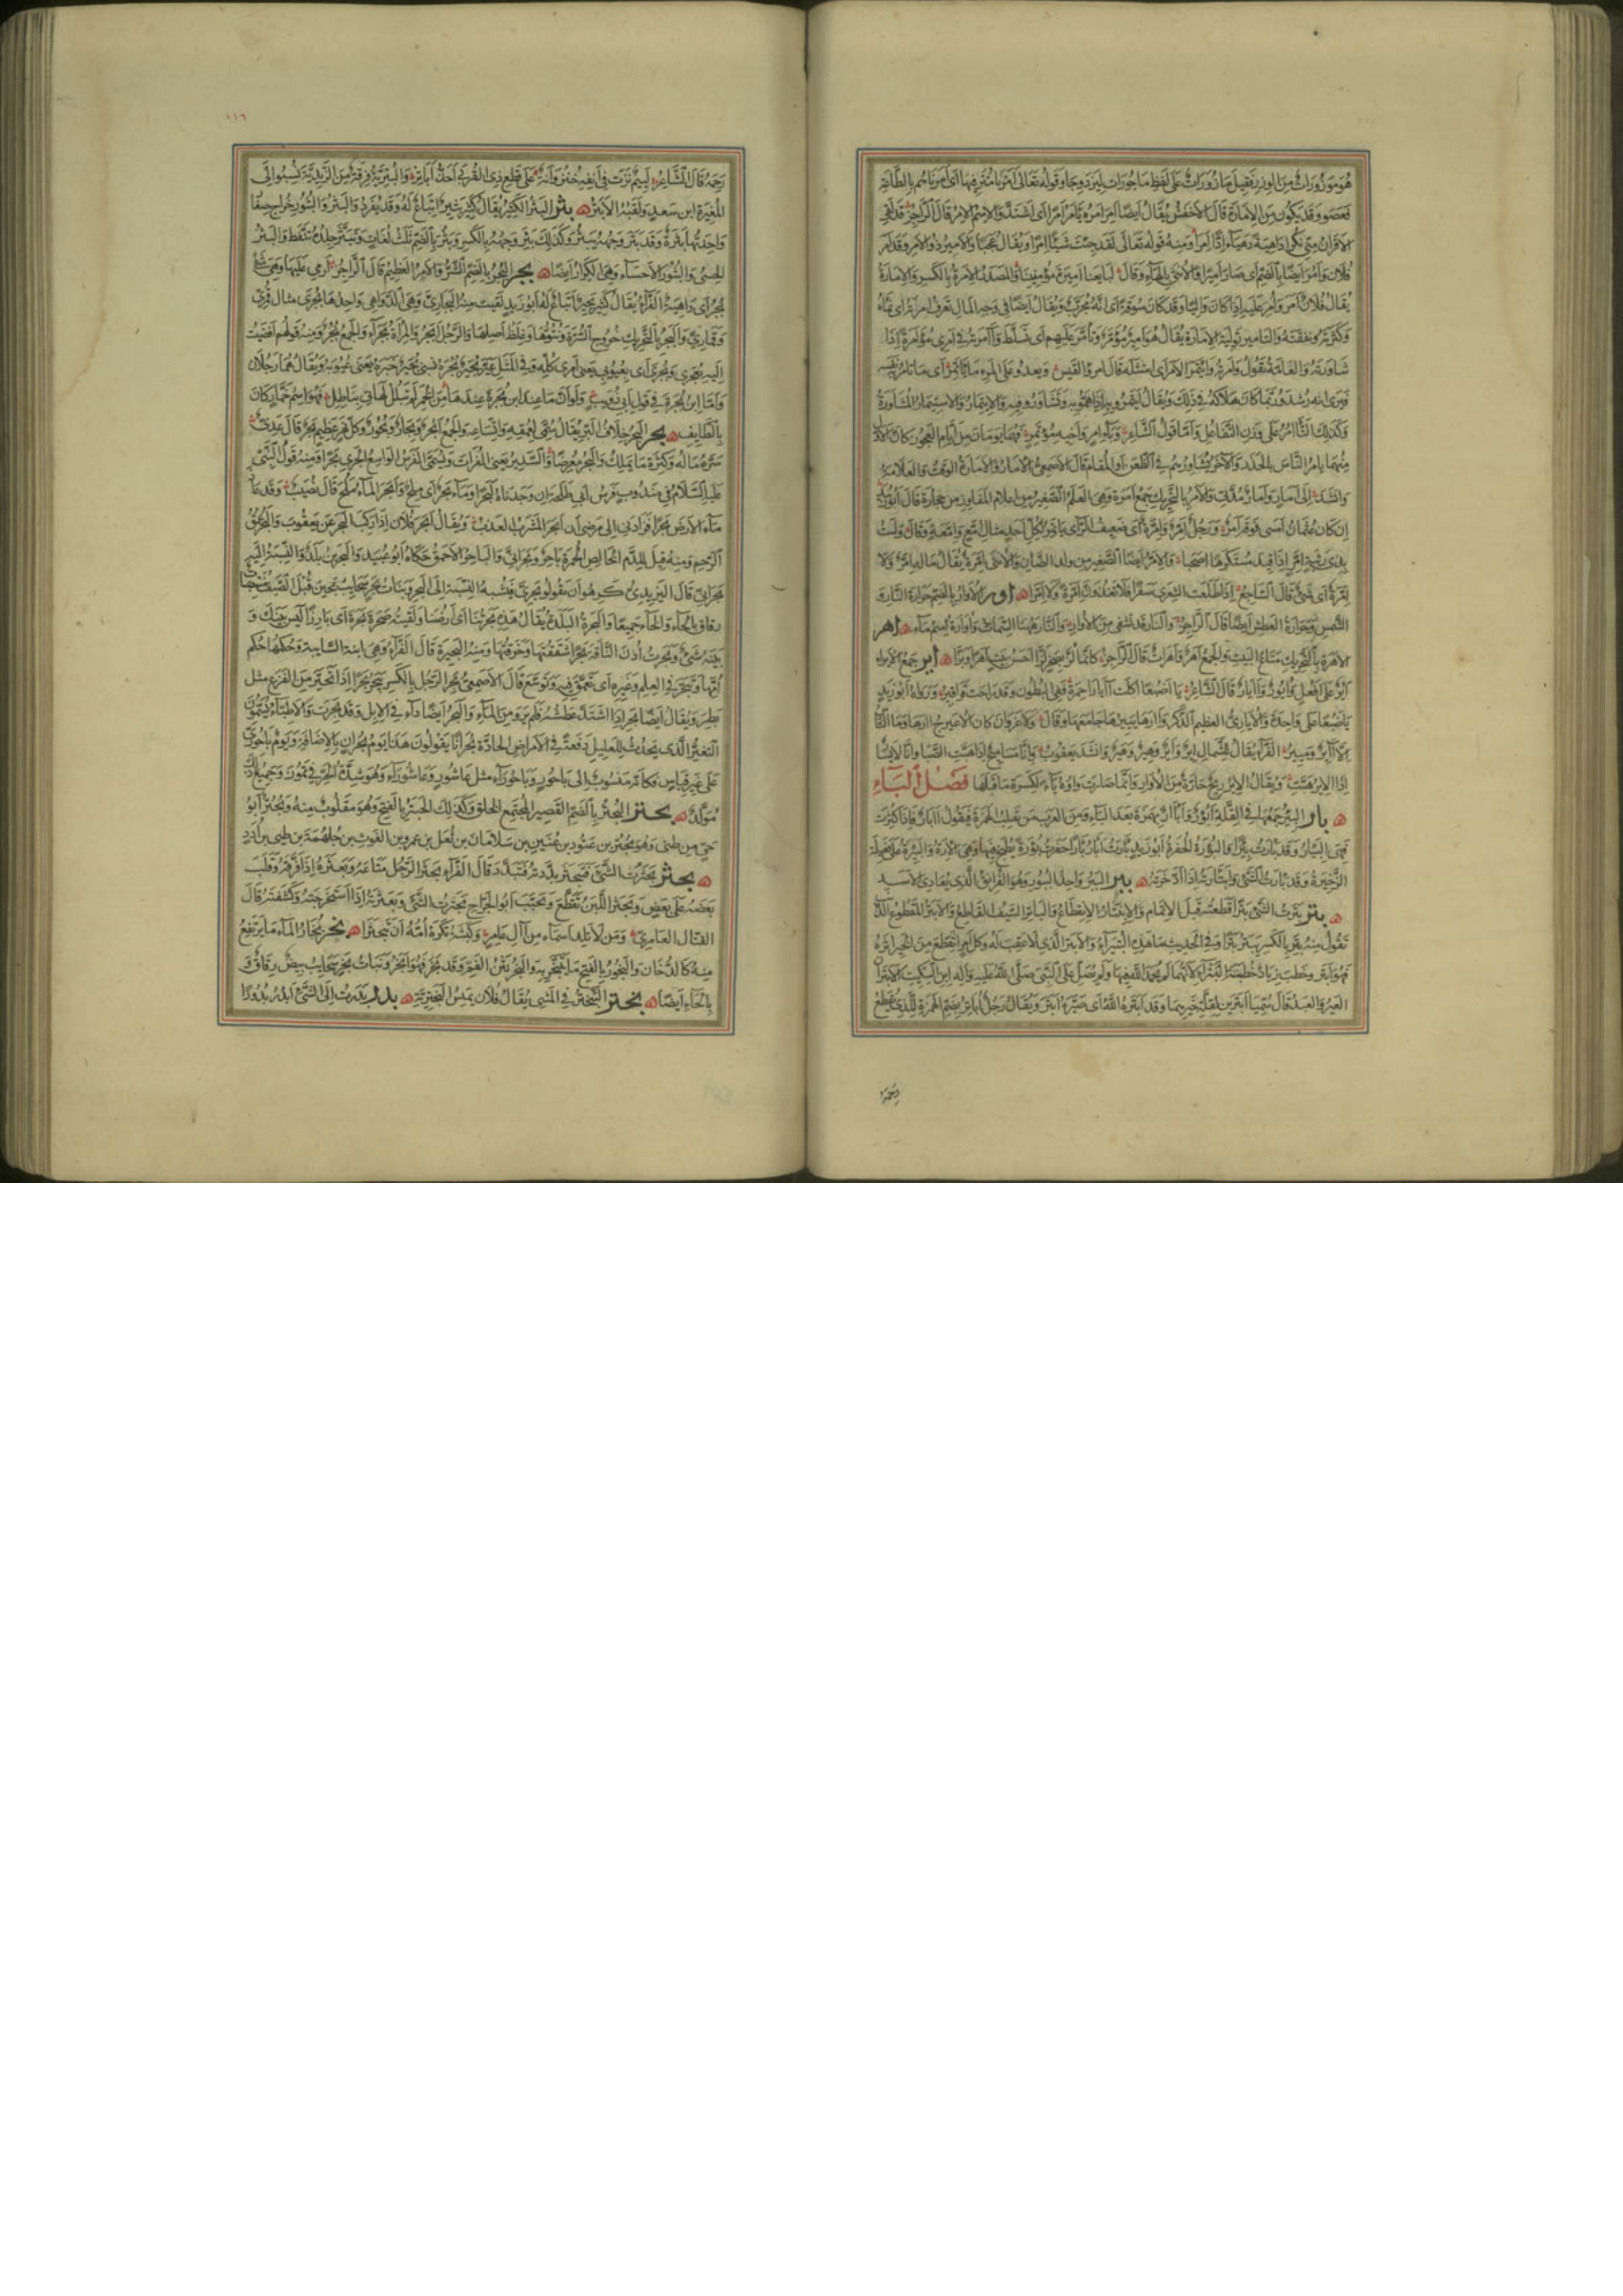 هو موزورات من الوزر فقيل مأزورات على لفظ مأجورات ليزدوجا وقوله تعالى أمرنا مترفيها أي أمرناهم بالطاعة
فعصوا وقد يكون من الإمارة قال الأخفش يقال أيضا أمر أمره يأمر أمرا أي اشتد والاسم الإمر قال الراجز قد لقي
الأقران مني نكرا داهية دهياء إدا إمرا ومنه قوله تعالى لقد جئت شيئا إمرا ويقال عجبا والأمير ذو الأمر وقد أمر
فلان وأمر أيضا بالضم أي صار أميرا والأنثى بالهاء وقال لبايعنا أميرة مؤمنينا والمصدر الإمرة بالكسر والإمارة
يقال فلان أمر وأمر عليه إذا كان واليا وقد كان سوقة أي أنه مجرب ويقال أيضا في وجه المال تعرف أمرته أي نماءه
وكثرته ونفقته والتأمير تولية الإمارة يقال هو أمير مؤمر وتأمر عليهم أي تسلط وآمرته في أمري مؤامرة إذا
شاورته والعامة تقول وامرته وائتمر الأمر أي امتثله قال امرؤ القيس ويعدو على المرء ما يأتمر أي ما تأمر به نفسه
فيرى أنه رشد فربما كان هلاكه في ذلك ويقال ائتمروا به إذا هموا به وتشاوروا فيه والائتمار والاستئمار المشاورة
وكذلك التآمر على وزن التفاعل وأما قول الشاعر وبآمر وأخيه مؤتمر فهما يومان من أيام العجوز كان الأول
منهما يأمر الناس بالحذر والآخر يشاورهم في الظعن أو المقام قال الأصمعي الأمار والأمارة الوقت والعلامة
وأنشد إلى أمار وأمار مدتي والأمر بالتحريك جمع أمرة وهي العلم الصغير من أعلام المفاوز من حجارة قال أبو زبيد
إن كان عثمان أمسى فوقه أمر ورجل إمر وإمرة أي ضعيف الرأي يأتمر لكل أحد مثال إمع وإمعة وقال ولست
بذي رثية إمر إذا قيد مستكرها أصحبا والإمر أيضا الصغير من ولد الضأن والأنثى إمرة يقال ماله إمر ولا
إمرة أي شيء قال الساجع إذا طلعت الشعرى سفرا فلا تغدون إمرة ولا إمرا ه أور الأوار بالضم حرارة النار و
الشمس وحرارة العطش أيضا قال الراجز والنار قد تشفي من الأوار والنار ههنا السمات وأوارة اسم ماء ه أهر
الأهرة بالتحريك متاع البيت والجمع أهر وأهرات قال الراجز كأنما لز بصخر لزا أحسن بيت أهرا وبزا ه أير جمع الأير
آير على أفعل وأيور وآيار قال الشاعر يا أضبعا أكلت آيار أحمرة ففي البطون وقد راحت قراقير ورواه أبو زيد
يا ضبعا على واحدة والأياري العظيم الذكر وآرها يئيرها جامعها وقال ولا غرو أن كان الأعيرج آرها وما الناس
إلا آير ومئير الفراء يقال للشمال إير وأير وهير وهير وأنشد يعقوب وإنا مساميح إذا هبت الصبا وإنا لأيسار
إذا الإير هبت ويقال الإير ريح حارة من الأوار وإنما صارت واوه ياء لكسرة ما قبلها فصل الباء
ه بأر البئر جمعها في القلة أبؤر وأبآر بهمزة بعد الباء ومن العرب من يقلب الهمزة فيقول آبار فإذا كثرت
فهي البئار وقد بأرت بئرا والبؤرة الحفرة أبو زيد بأرت أبأر بأرا حفرت بؤرة يطبخ فيها وهي الإرة والبئيرة على فعيلة
الذخيرة وقد بأرت الشيء وابتأرته إذا ادخرته ه ببر الببر واحد الببور وهو الفرانق الذي يعادي الأسد
ه بتر بترت الشيء بترا قطعته قبل الإتمام والانبتار الانقطاع والباتر السيف القاطع والأبتر المقطوع الذنب
تقول منه بتر بالكسر يبتر بترا وفي الحديث ما هذه البتيراء والأبتر الذي لا عقب له وكل أمر انقطع من الخير أثره
فهو أبتر وخطب زياد خطبته البتراء لأنه لم يحمد الله فيها ولم يصل على النبي صلى الله عليه وآله ابن السكيت الأبتران
العير والعبد قال سميا أبترين لقلة خيرهما وقد أبتره الله أي صيره أبتر ويقال رجل أباتر بضم الهمزة للذي يقطع
رحمه
رحمه قال الشاعر لئيم نزت في أنفه خنزوانة على قطع ذي القربى أحذ أباتر والبترية فرقة من الزيدية نسبوا إلى
المغيرة ابن سعد ولقبه الأبتر ه بثر البثر الكثير يقال كثير بثير إتباع له وقد يفرد والبثر والبثور خراج صغار
واحدتها بثرة وقد بثر وجهه يبثر وكذلك بثر وجهه بالكسر وبثر بالضم ثلث لغات وتبثر جلده تنفط والبثر
الحسي والبثور الأحساء وهي الكرار أيضا ه بجر البجر بالضم الشر والأمر العظيم قال الراجز أرمي عليها وهي شيء
بجر أي داهية الفراء يقال كثير بجير إتباع له أبو زيد لقيت منه البجاري وهي الدواهي واحدها بجري مثال قمري
وقماري والبجر بالتحريك خروج السرة ونتوها وغلظ أصلها والرجل أبجر والمرأة بجراء والجمع بجر ومنه قولهم أفضيت
إليه بعجري وبجري أي بعيوبي يعني أمري كله وفي المثل عير بجير بجرة نسي بجير خبره يعني عيوبه ويقال هما رجلان
وأما ابن بجرة في قول أبي ذؤيب ولو أن ما عند ابن بجرة عندها من الخمر لم تبلل لهاتي بناطل فهو اسم خمار كان
بالطائف ه بحر البحر خلاف البر يقال سمي لعمقه واتساعه والجمع أبحر وبحار وبحور وكل نهر عظيم بحر قال عدي
سره ماله وكثرة ما يملك والبحر معرضا والسدير يعني الفرات ويسمى الفرس الواسع الجري بحرا ومنه قول النبي
عليه السلام في مندوب فرس أبي طلحة إن وجدناه لبحرا وماء بحر أي ملح وأبحر الماء ملح قال نصيب وقد عاد
ماء الأرض بحرا فزادني إلى مرضي أن أبحر المشرب العذب ويقال أبحر فلان إذا ركب البحر عن يعقوب والبحر عمق
الرحم ومنه قيل للدم الخالص الحمرة باحر وبحراني والباحر الأحمق حكاه أبو عبيد والبحرين بلد والنسبة إليه
بحراني قال اليزيدي كرهوا أن يقولوا بحري فيشبه النسبة إلى البحر وبنات بحر سحائب يجئن قبل الصيف منتصبات
رقاق بالحاء والخاء جميعا والبحرة البلدة يقال هذه بحرتنا أي أرضنا ولقيته صحرة بحرة أي بارزا ليس بينك و
بينه شيء وبحرت أذن الناقة بحرا شققتها وخرقتها ومنه البحيرة قال الفراء وهي ابنة السائبة وحكمها حكم
أمها وتبحر في العلم وغيره أي تعمق فيه وتوسع قال الأصمعي بحر الرجل بالكسر يبحر بحرا إذا تحير من الفزع مثل
بطر ويقال أيضا بحر إذا اشتد عطشه فلم يرو من الماء والبحر أيضا داء في الإبل وقد بحرت والأطباء يسمون
التغير الذي يحدث للعليل دفعة في الأمراض الحادة بحرانا يقولون هذا يوم بحران بالإضافة ويوم باحوري
على غير قياس فكأنه منسوب إلى باحور وباحوراء مثل عاشور وعاشوراء وهو شدة الحر في تموز وجميع ذلك
مولد ه بحتر البحتر بالضم القصير المجتمع الخلق وكذلك الحبتر بالفتح وهو مقلوب منه وبحتر أبو
حي من طيئ وهو بحتر بن عتود بن عنين بن سلامان بن ثعل بن عمرو بن الغوث بن جلهمة بن طيئ بن أدد
ه بحثر بحثرت الشيء فتبحثر بددته فتبدد قال الفراء بحثر الرجل متاعه وبعثره إذا فرقه وقلب
بعضه على بعض وبحثر اللبن تقطع وتحبب أبو الجراح بحثرت الشيء وبعثرته إذا استخرجته وكشفته قال
القتال العامري ومن لا تلد أسماء من آل عامر وكبشة تكره أمه أن تبحثرا ه بخر بخار الماء ما يرتفع
منه كالدخان والبخور بالفتح ما يتبخر به والبخر نتن الفم وقد بخر فهو أبخر وبنات بخر سحايب بيض رقاق و
بالحاء أيضا ه بختر التبختر في المشي يقال فلان يمشي البخترية ه بدر بدرت إلى الشيء أبدر بدورا